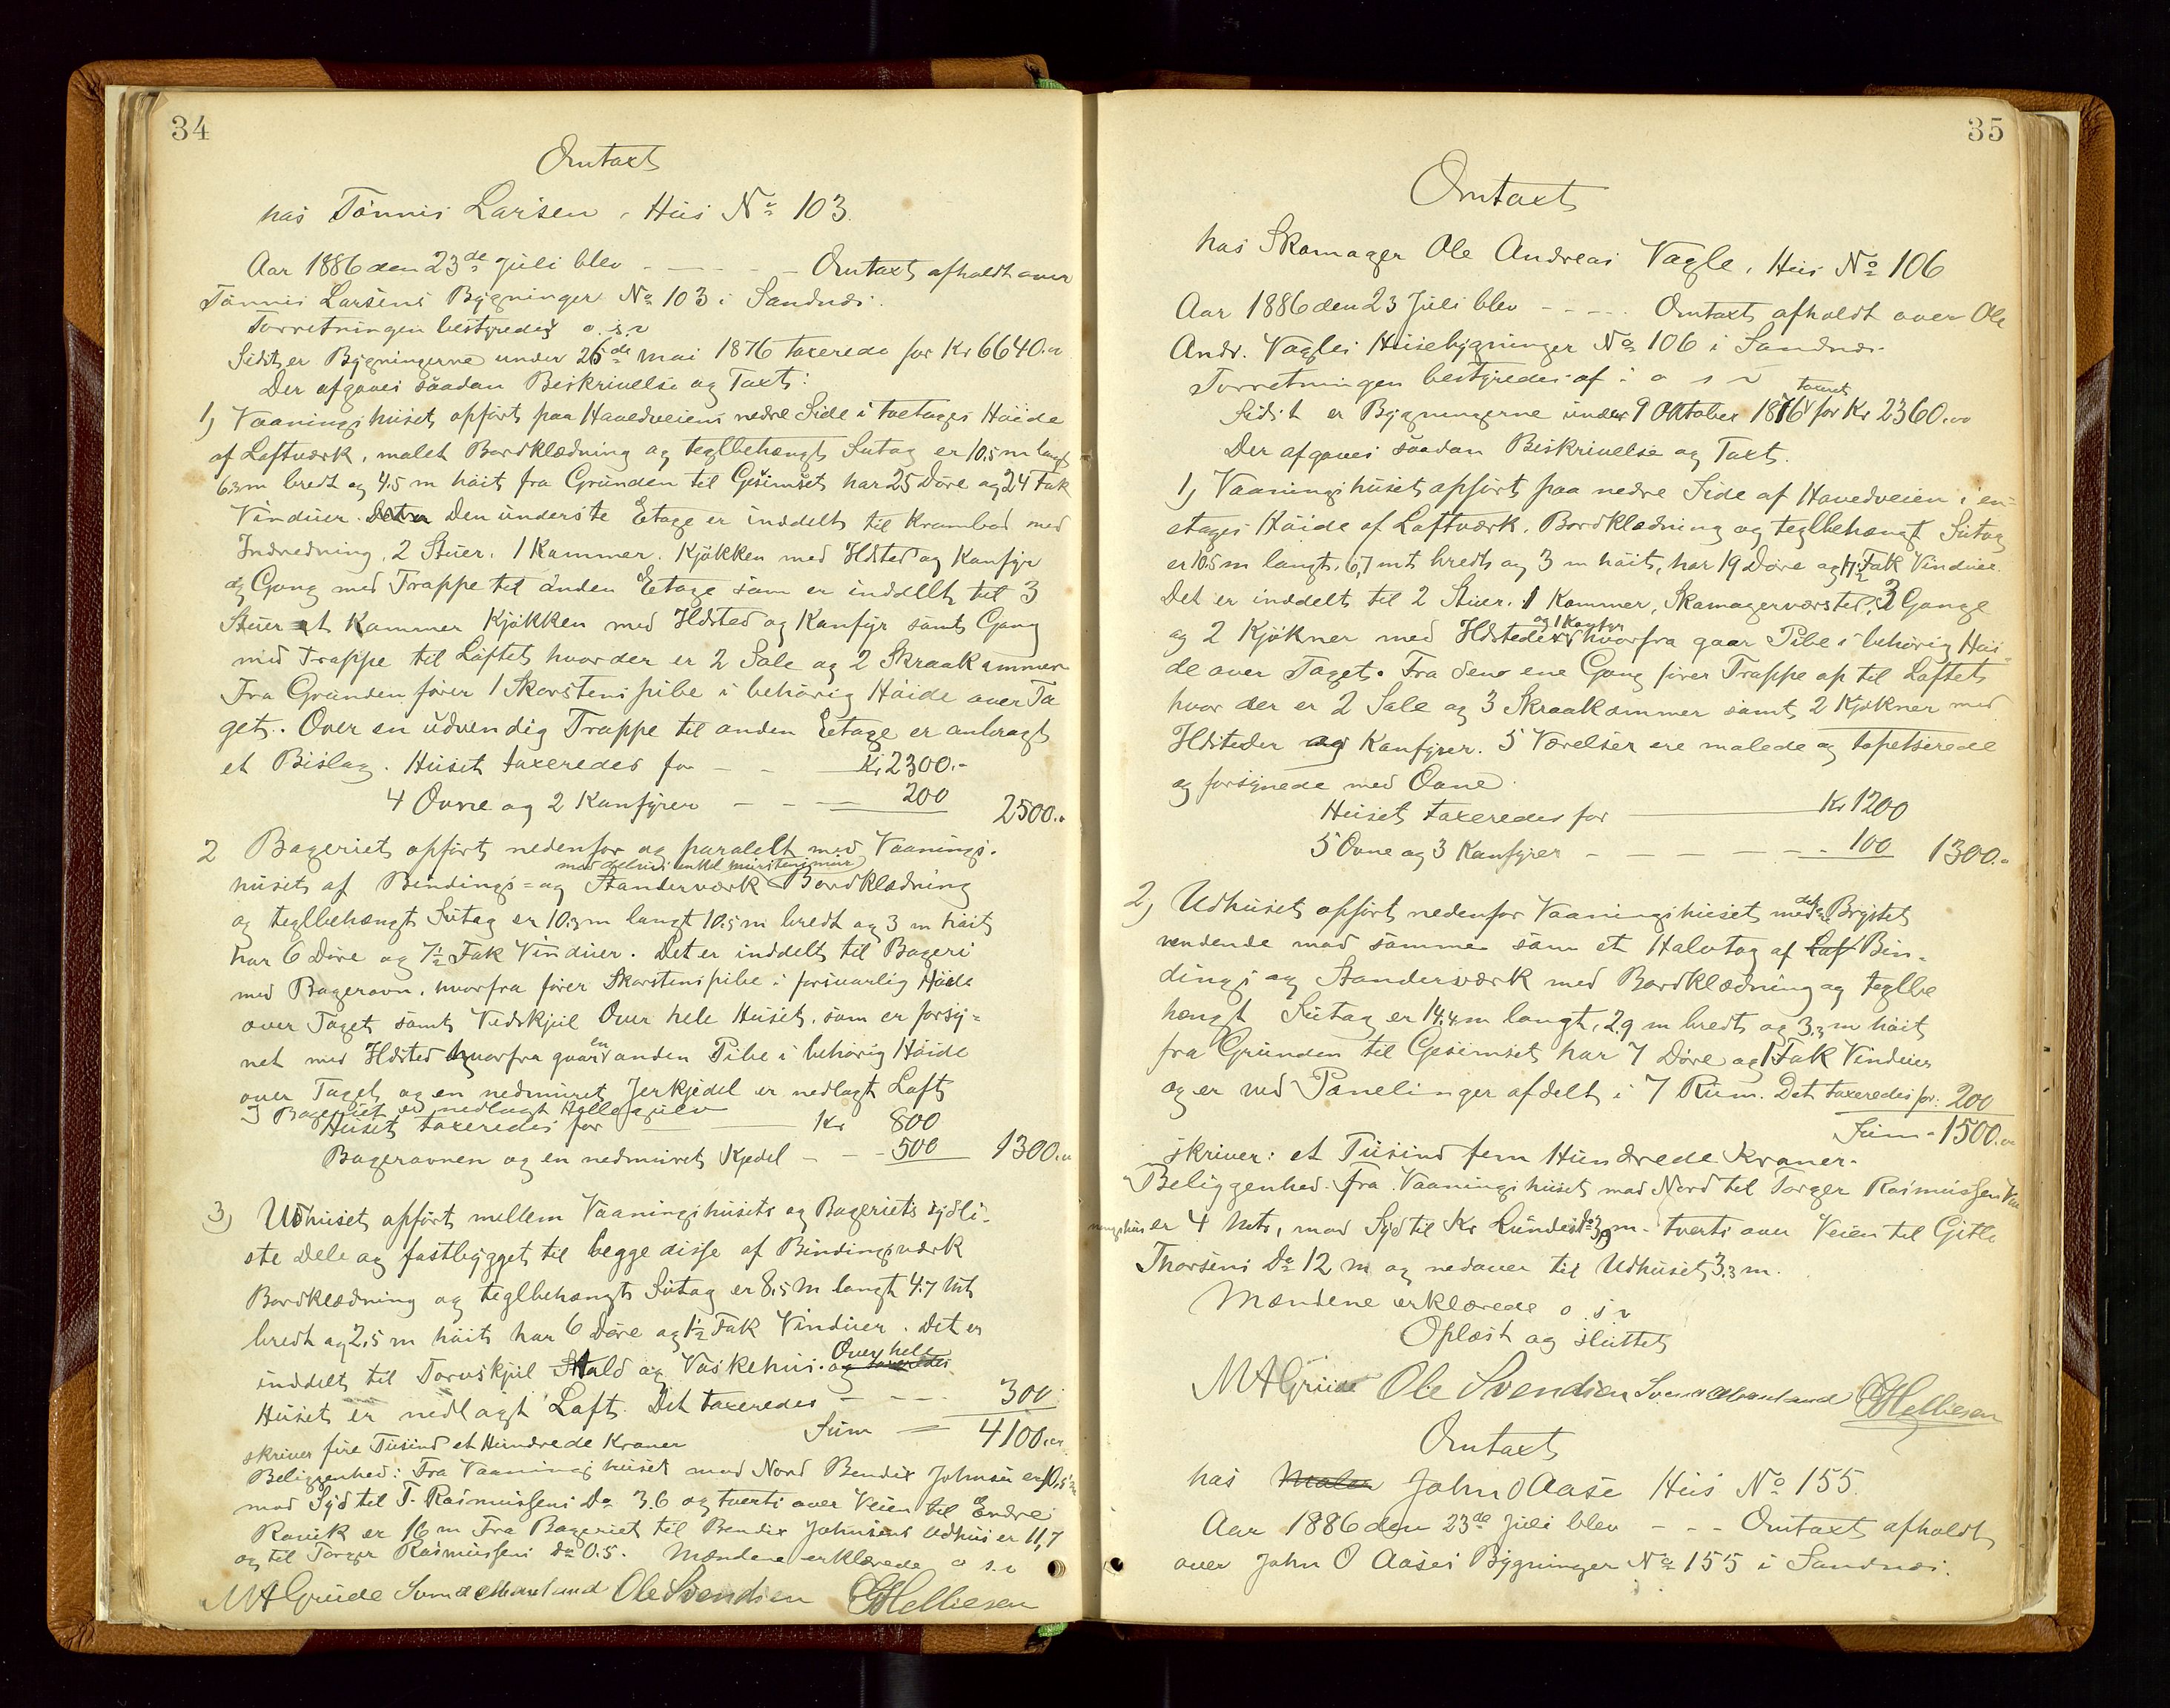 34
Omtaxt
hos Tönnis Larsen, Hus No 103.
Aar 1886 den 23de Juli blev - - - - - Omtaxt afholdt over
Tönnis Larsens Bygninger No 103 i Sandnæs.
Forretningen bestyredes o. s. v
Sidst er Bygningerne under 26de Mai 1876 taxerede for Kr 6640.00
Der afgaves saadan Beskrivelse og Taxt:
1) Vaaningshuset opfört paa Hovedveiens nedre Side i toetages Höide
af Loftværk, malet Bordklædning og teglbehængt Sutag er 10.5 m langt
6.3 m bredt og 4.5 m höit fra Grunden til Gesimset har 25 Döre og 24 Fak
Vinduer. Den underste Etage er inddelt til Krambod med
Indredning, 2 Stuer, 1 Kammer, Kjökken med Ildsted og Komfyr
og Gang med Trappe til anden Etage som er inddelt til 3
Stuer et Kammer Kjökken med Ildsted og Komfyr samt Gang
med Trappe til Loftet hvor der er 2 Sale og 2 Skraakammer
Fra Grunden förer 1 Skorstenspibe i behörig Höide over Ta
get. Over en udvendig Trappe til anden Etage er anbragt
et Bislag. Huset taxeredes for - - Kr 2300.-
4 Ovne og 2 Komfyrer - - - 200 2500.00
2 Bageriet opfört nedenfor og paralelt med Vaanings-
med delvis enkel Murstensmur
huset af Bindings- og Standerværk Bordklædning
og teglbehængt Sutag er 10.3 m langt 10.5 m bredt og 3 m höit
har 6 Döre og 7½ Fak Vinduer. Det er inddelt til Bageri
med Bagerovn, hvorfra förer Skorstenspibe i forsvarlig Höide
over Taget samt Vedskjul Over hele Huset, som er forsy=
net med Ildsted hvorfra gaar en anden Pibe i behörig Höide
over Taget og en nedmuret Jerkjedel er nedlagt Loft
I Bageriet er nedlagt Hellegulv
Huset taxeredes for - - Kr 800
Bagerovnen og en nedmuret Kjedel - - - 500 1300.00
3) Udhuset opfört mellem Vaaningshusets og Bageriets sydli-
ste Dele og fastbygget til begge disse af Bindingsværk
Bordklædning og teglbehængt Sutag er 8.5 m langt 4.7 mt
bredt og 2.5 m höit har 6 Döre og 1½ Fak Vinduer. Det er
inddelt til Torvskjul Stald og Vaskehus. og taxeredes Over hele
Huset er nedlagt Loft. Det taxeredes - - - 300
Sum = 4100.00
skriver fire Tusind et Hundrede Kroner
Beliggenhed: Fra Vaaningshuset mod Nord Bendix Johnsen er 10.5 m
mod Syd til T. Rasmussens Do 3.6 og tverts over Veien til Endre
Ravik er 16 m Fra Bageriet til Bendix Johnsens Udhus er 11,7
og til Torger Rasmussens do 0.5. Mændene erklærede o s. v
M A Grude Svend Ole Svendsen G Helliesen
35
Omtaxt
hos Skomager Ole Andreas Vagle, Hus No 106
Aar 1886 den 23 Juli blev - - - - Omtaxt afholdt over Ole
Andr. Vagles Husebygninger No 106 i Sandnæs.
Forretningen bestyredes af: o s v
Sidst er Bygningerne under 9 Oktober 1876 taxeret for Kr 2360.00
Der afgaves saadan Beskrivelse og Taxt.
1) Vaaningshuset opfört paa nedre Side af Hovedveien i en-
etages Höide af Loftværk, Bordklædning og teglbehængt Sutag
er 10.5 m langt, 6,7 mt bredt og 3 m höit, har 19 Döre og 17½ Fak Vinduer.
Det er inddelt til 2 Stuer, 1 Kammer, Skomagerværsted, 3 Gange
og 2 Kjökner med Ildsteder og 1 Komfyr hvorfra gaar Pibe i behörig Höi-
de over Taget. Fra den ene Gang förer Trappe op til Loftet
hvor der er 2 Sale og 3 Skraakammer samt 2 Kjökner med
Ildsteder og Komfyrer. 5 Værelser ere malede og tapetserede
og forsynede med Ovne.
Huset taxeredes for - Kr 1200
5 Ovne og 3 Komfyrer - - - - - - 100 1300.00
2) Udhuset opfört nedenfor Vaaningshuset med det Brystet
vendende mod samme som et Halvtag af Laf Bin-
dings og Standerværk med Bordklædning og teglbe
hængt Sutag er 14.4 m langt, 2.9 m bredt og 3.3 m höit
fra Grunden til Gesimset har 7 Döre og 1 Fak Vinduer
og er ved Panelinger afdelt i 7 Rum. Det taxeredes for: 200
Sum - 1500.00
skriver: et Tusind fem Hundrede Kroner.
Beliggenhed. Fra Vaaningshuset mod Nord til Torger Rasmussen Vaa
ningshus er 4 Mt, mod Syd til Kr Lundes Do 3,9 m. tverts over Veien til Gitle
Thorsens Do 12 m og nedover til Udhuset 3.3 m.
Mændene erklærede o. s. v
Oplæst og sluttet
M A Grude Ole Svendsen Svend G Helliesen
Omtaxt
hos Maler John O Aase Hus No 155.
Aar 1886 den 23de Juli blev - - - Omtaxt afholdt
over John O Aases Bygninger No 155 i Sandnæs.